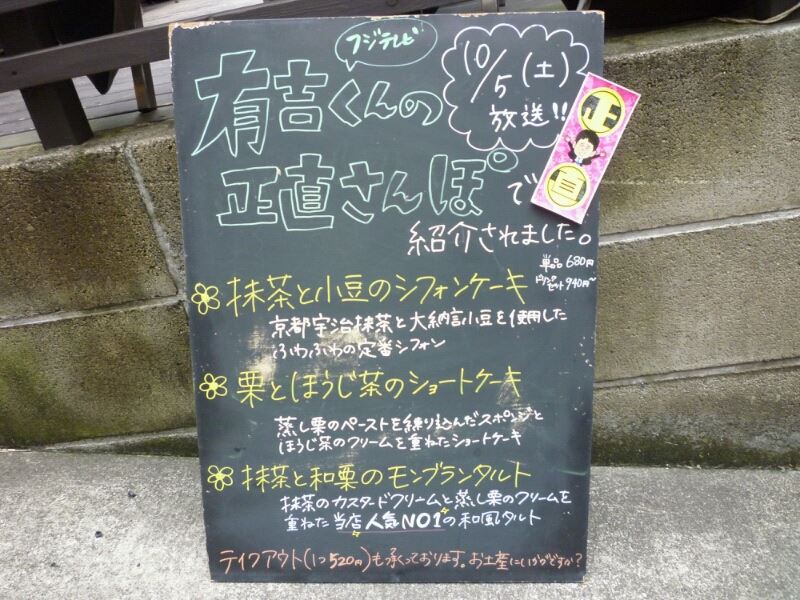 フジテレビ
10/5(土)
放送!!
有吉くんの
正直さんぽで
正直
紹介されました。
単品680円
ドリンクセット940円〜
抹茶と小豆のシフォンケーキ
京都宇治抹茶と大納言小豆を使用した
ふわふわの定番シフォン
栗とほうじ茶のショートケーキ
蒸し栗のペーストを練り込んだスポンジと
ほうじ茶のクリームを重ねたショートケーキ
抹茶と和栗のモンブランタルト
抹茶のカスタードクリームと蒸し栗のクリームを
重ねた当店人気NO1の和風タルト
テイクアウト(1つ520円)も承っております。お土産にいかがですか?